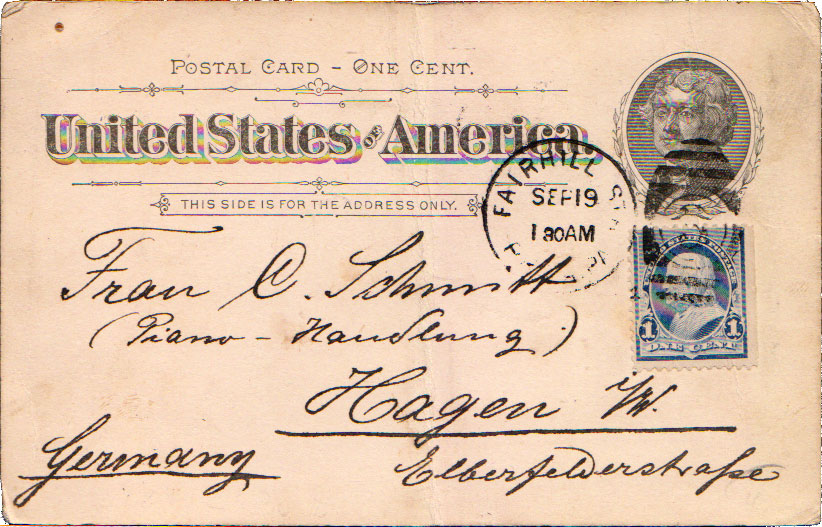 POSTAL CARD – ONE CENT.
United States OF America
THIS SIDE IS FOR THE ADDRESS ONLY.
FAIRHILL STA
SEP 19
1 30 AM
Frau C. Schmitt
(Piano – Handlung)
Hagen i/W.
Germany
Elberfelderstraße
UNITED STATES POSTAGE
1 1
ONE CENT